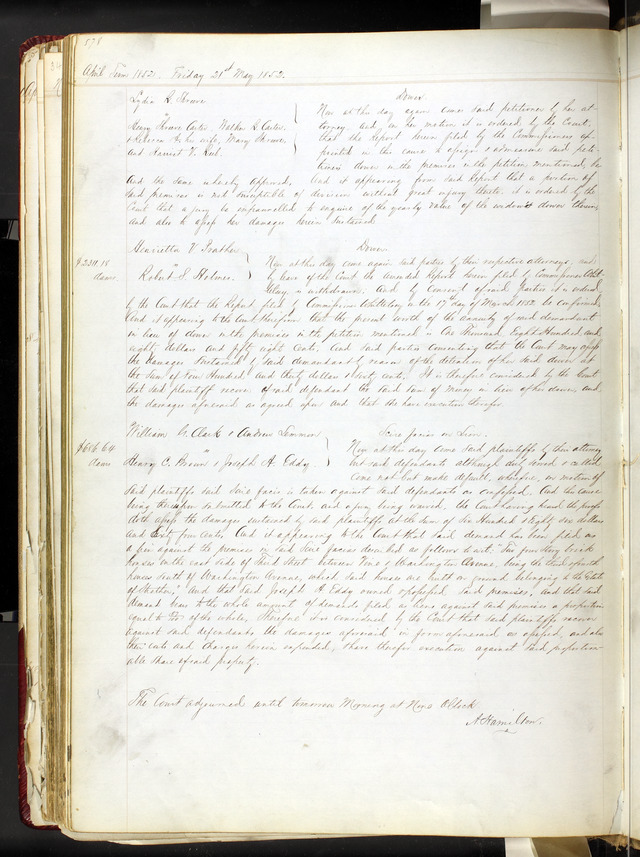 578
April Term 1852. Friday 21st May 1852.
Lydia
vs
Henry Shreve Carter, Walker R. Carter,
& Rebecca A. his wife, Mary Shreve,
and Harriet V.
Dower
Now at this day again comes said petitioner by her at-
torney, And, on her motion it is ordered by the Court,
that the Report herein filed by the Commissioners ap-
pointed in this cause to assign & admeasure said peti-
tioners dower in the premises in the petition mentioned, be
And the same is hereby approved, And it appearing from said Report that a portion of
said premises is not susceptible of division without great injury thereto it is ordered by the
Court that a jury be empannelled to enquire of the yearly value of the widow's dower therein,
and also to assess her damages herein sustained.
$230.18
dams.
Henrietta V. Prather
vs
Robert S. Holmes.
Dower
Now at this day come again said parties by their respective attorneys, and
by leave of the Court the Amended Report herein filed by Commissioner Whit-
tlesey is withdrawn. And by Consent of said Parties it is ordered
by the Court that the Report filed by Commissioner Whittlesey on the 17th day of March 1852 be confirmed,
And it appearing to the Court therefrom that the present worth of the annuity of said demandant
in lieu of dower in the premises in the petition mentioned is One Thousand Eight Hundred and
eighty dollars and fifty eight cents, And said parties consenting that the Court may assess
the damages sustained by said demandant by reason of the detention of her said dower at
the sum of Hundred and thirty dollars & cents, It is therefore considered by the Court
that said plaintiff recover of said defendant the said sum of money in lieu of her dower, and
the damages aforesaid as agreed upon and that she have execution therefor.
$686.64
dams
William G. Clark & Andrew
vs
Henry C. Brown & Joseph A. Eddy.
Scire facias on Lien.
Now at this day come said plaintiffs by their attorney
but said defendants although duly served & called
come not but make default, wherefore, on motion of
said plaintiffs said Scire facias is taken against said defendants as confessed. And this cause
being thereupon submitted to the Court, and a jury being waived, the Court having heard the proofs
doth assess the damages sustained by said plaintiffs at the sum of Six Hundred & Eighty six dollars
and Sixty four cents, And it appearing to the Court that said demand has been filed as
a lien against the premises in said Scire facias described as follows to wit: "Ten four story brick
houses on the east side of Third Street between Vine & Washington Avenue, being the of
houses south of Washington Avenue, which said houses are built on ground belonging to the Estate
of And that said Joseph A. Eddy owned & possessed said premises, And that said
demand bears to the whole amount of demands filed as liens against said premises a proportion
equal to of the whole, Therefore it is considered by the Court that said plaintiffs recover
against said defendants the damages aforesaid in form aforesaid as assessed, and also
their costs and charges herein expended, & have therefor execution against said proportion-
able share of said property.
The Court adjourned until tomorrow Morning at Nine OClock
A. Hamilton.